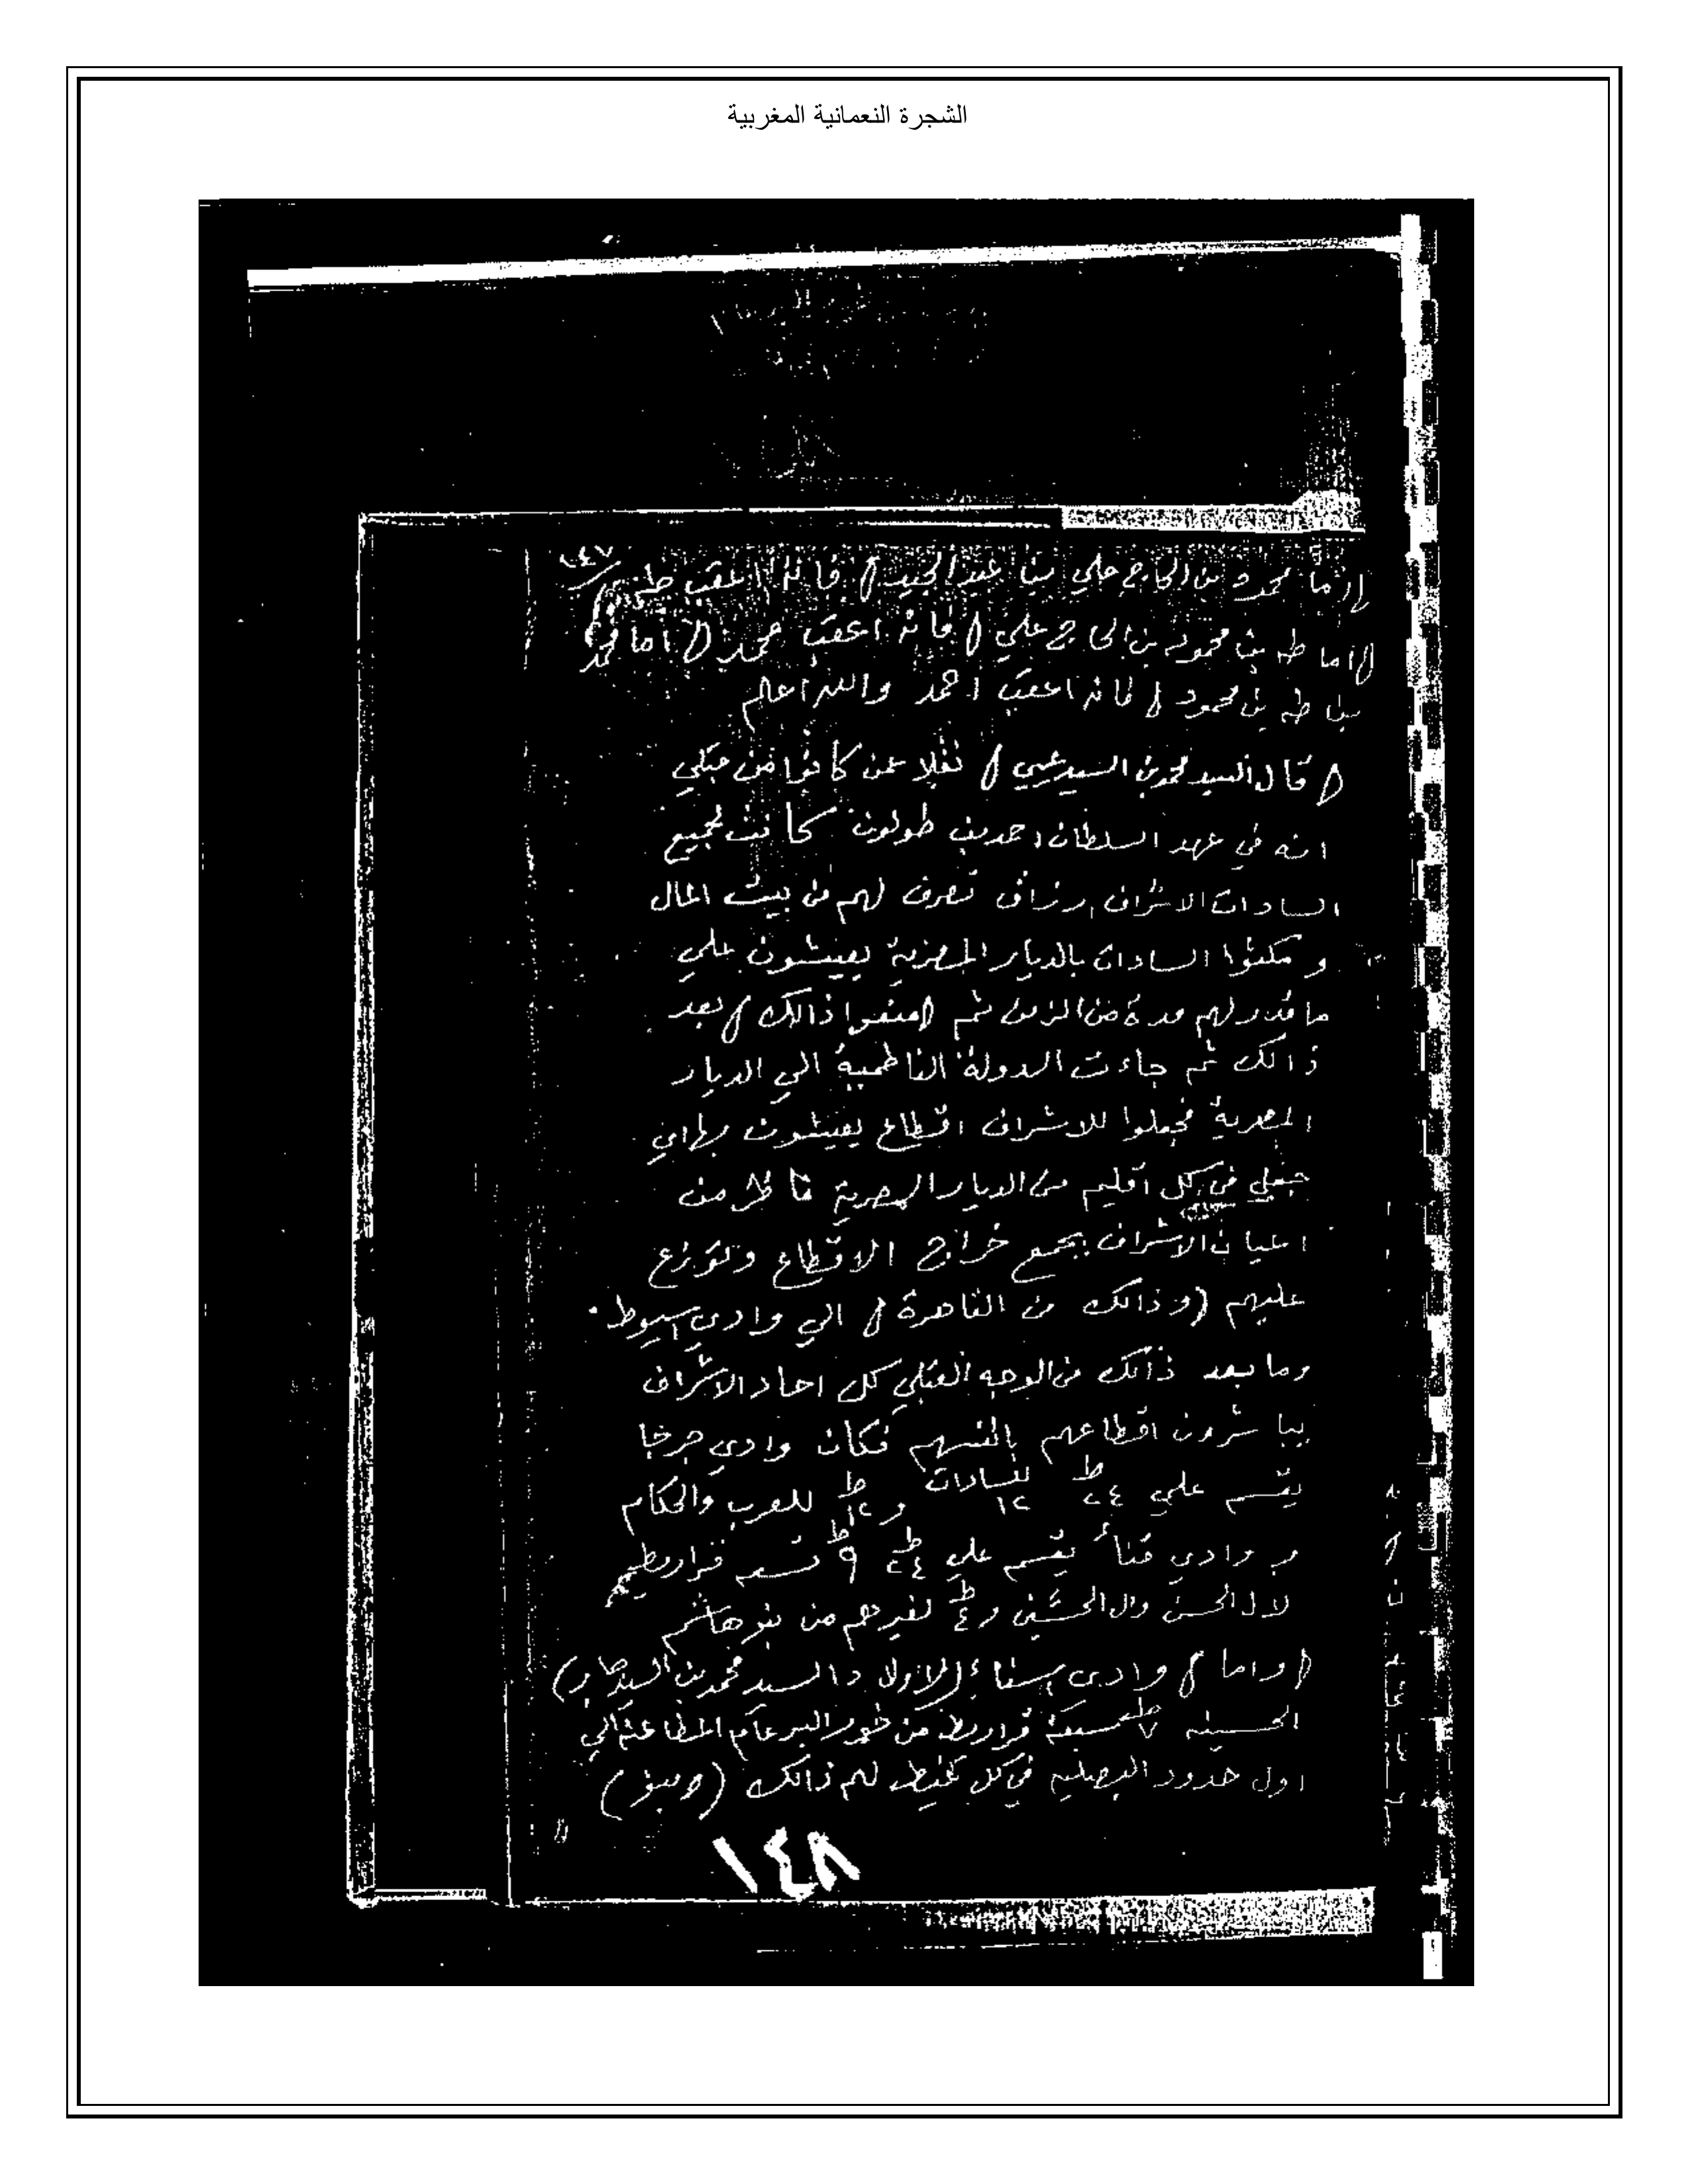 الشجرة النعمانية المغربية
١٤٧
(اما محمود بن الحاج علي بن عبد المجيد) فانه اعقب طه
(اما طه بن محمود بن الحاج علي) فانه اعقب محمد (اما محمد
بن طه بن محمود) فانه اعقب احمد والله اعلم
(قال السيد محمد بن السيد) نقلا عن كانوا من قبلي
انه في عهد السلطان احمد بن طولون كانت لجميع
السادات الاشراف ارزاق تصرف لهم من بيت المال
ومكثوا السادات بالديار المصرية يعيشون علي
ما قدر لهم مدة من الزمن ثم (منعوا ذالك) بعد
ذالك ثم جاءت الدولة الفاطمية الي الديار
المصرية فجعلوا للاشراف اقطاع يعيشون بها
في كل اقليم من الديار المصرية ناظر من
اعيان الاشراف يجمع خراج الاقطاع وتوزع
عليهم (وذالك من القاهرة) الي وادي اسيوط
وما بعد ذالك من الوجه القبلي كل احاد الاشراف
يباشرون اقطاعهم بانفسهم فكان وادي جرجا
يقسم علي ٢٤ ط ١٢ للسادات و ١٢ ط للعرب والحكام
و وادي قنا يقسم علي ٢٤ ط ٩ ط تسعه قراريط
لال الحسن وال الحسين و ٤ ط لغيرهم من بنو هاشم
(واما) وادي اسناء (لاولاد السيد محمد بن السيد جابر)
الحسينه ٧ ط سبعة قراريط من المطاعنه الي
اول حدود البصليه في كل لهم ذالك
١٤٨